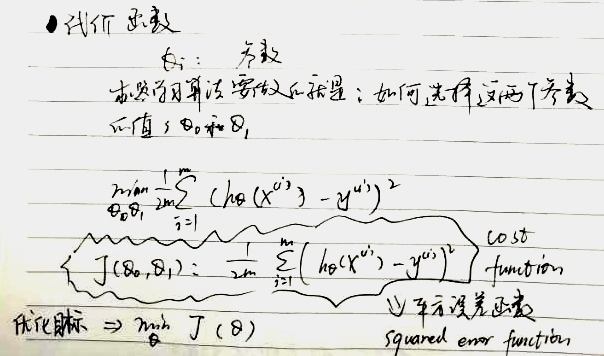 ●代价函数
θi: 参数
学习算法要做的就是:如何选择这两个参数
的值:θ₀和θ₁
min θ₀θ₁ 1/2m Σ i=1 m (hθ(x⁽ⁱ⁾) - y⁽ⁱ⁾)²
J(θ₀,θ₁): 1/2m Σ i=1 m (hθ(x⁽ⁱ⁾) - y⁽ⁱ⁾)² cost
function
⇓ 平方误差函数
优化目标 ⇒ min θ J(θ) squared error function